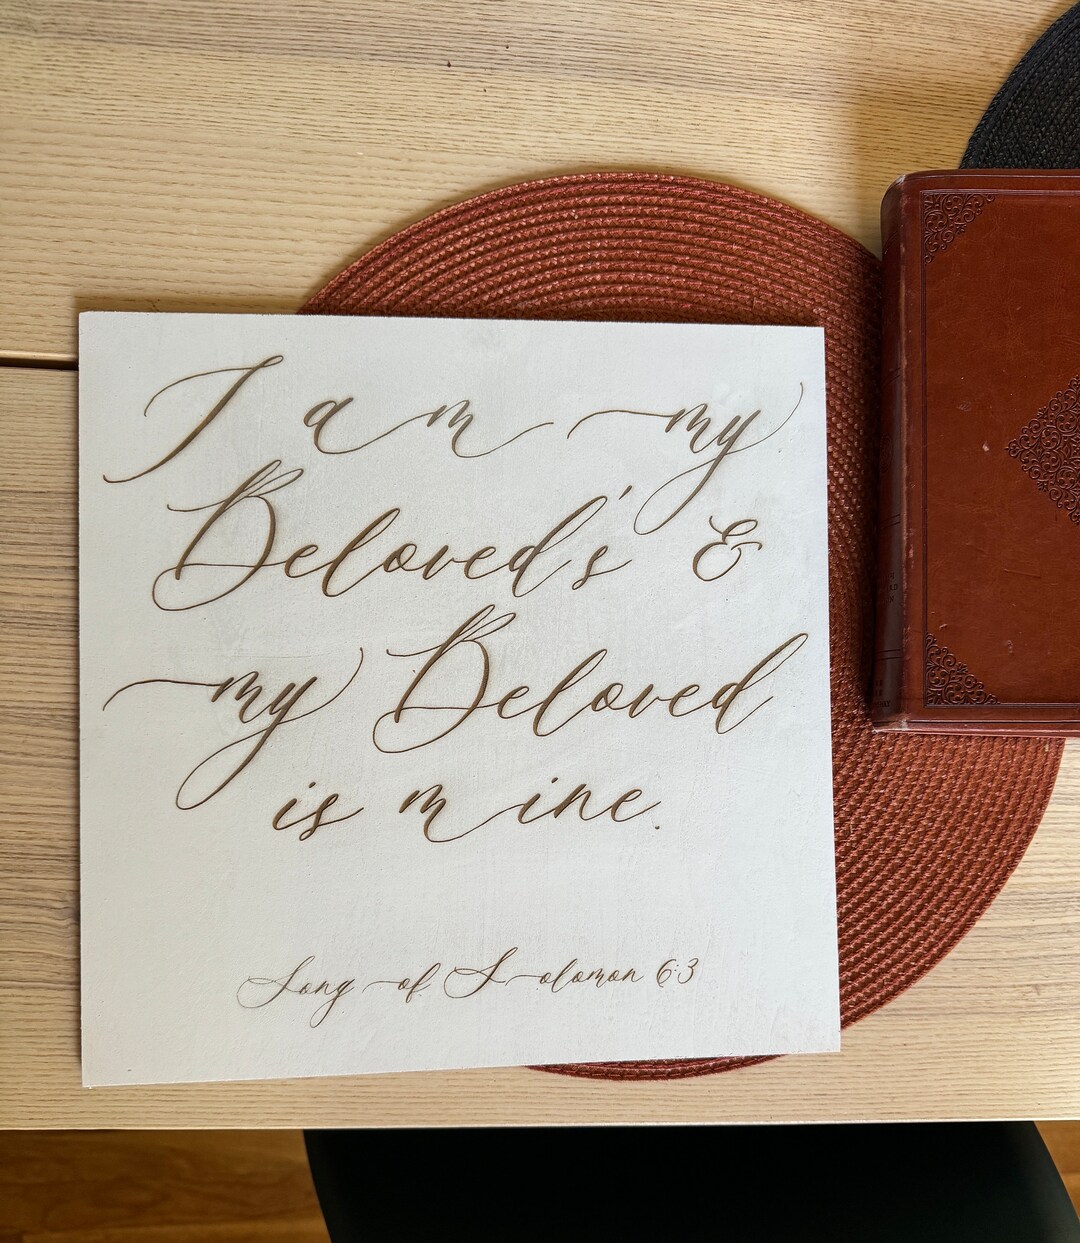 I am my
Beloved's &
my Beloved
is mine.
Song of Solomon 6:3